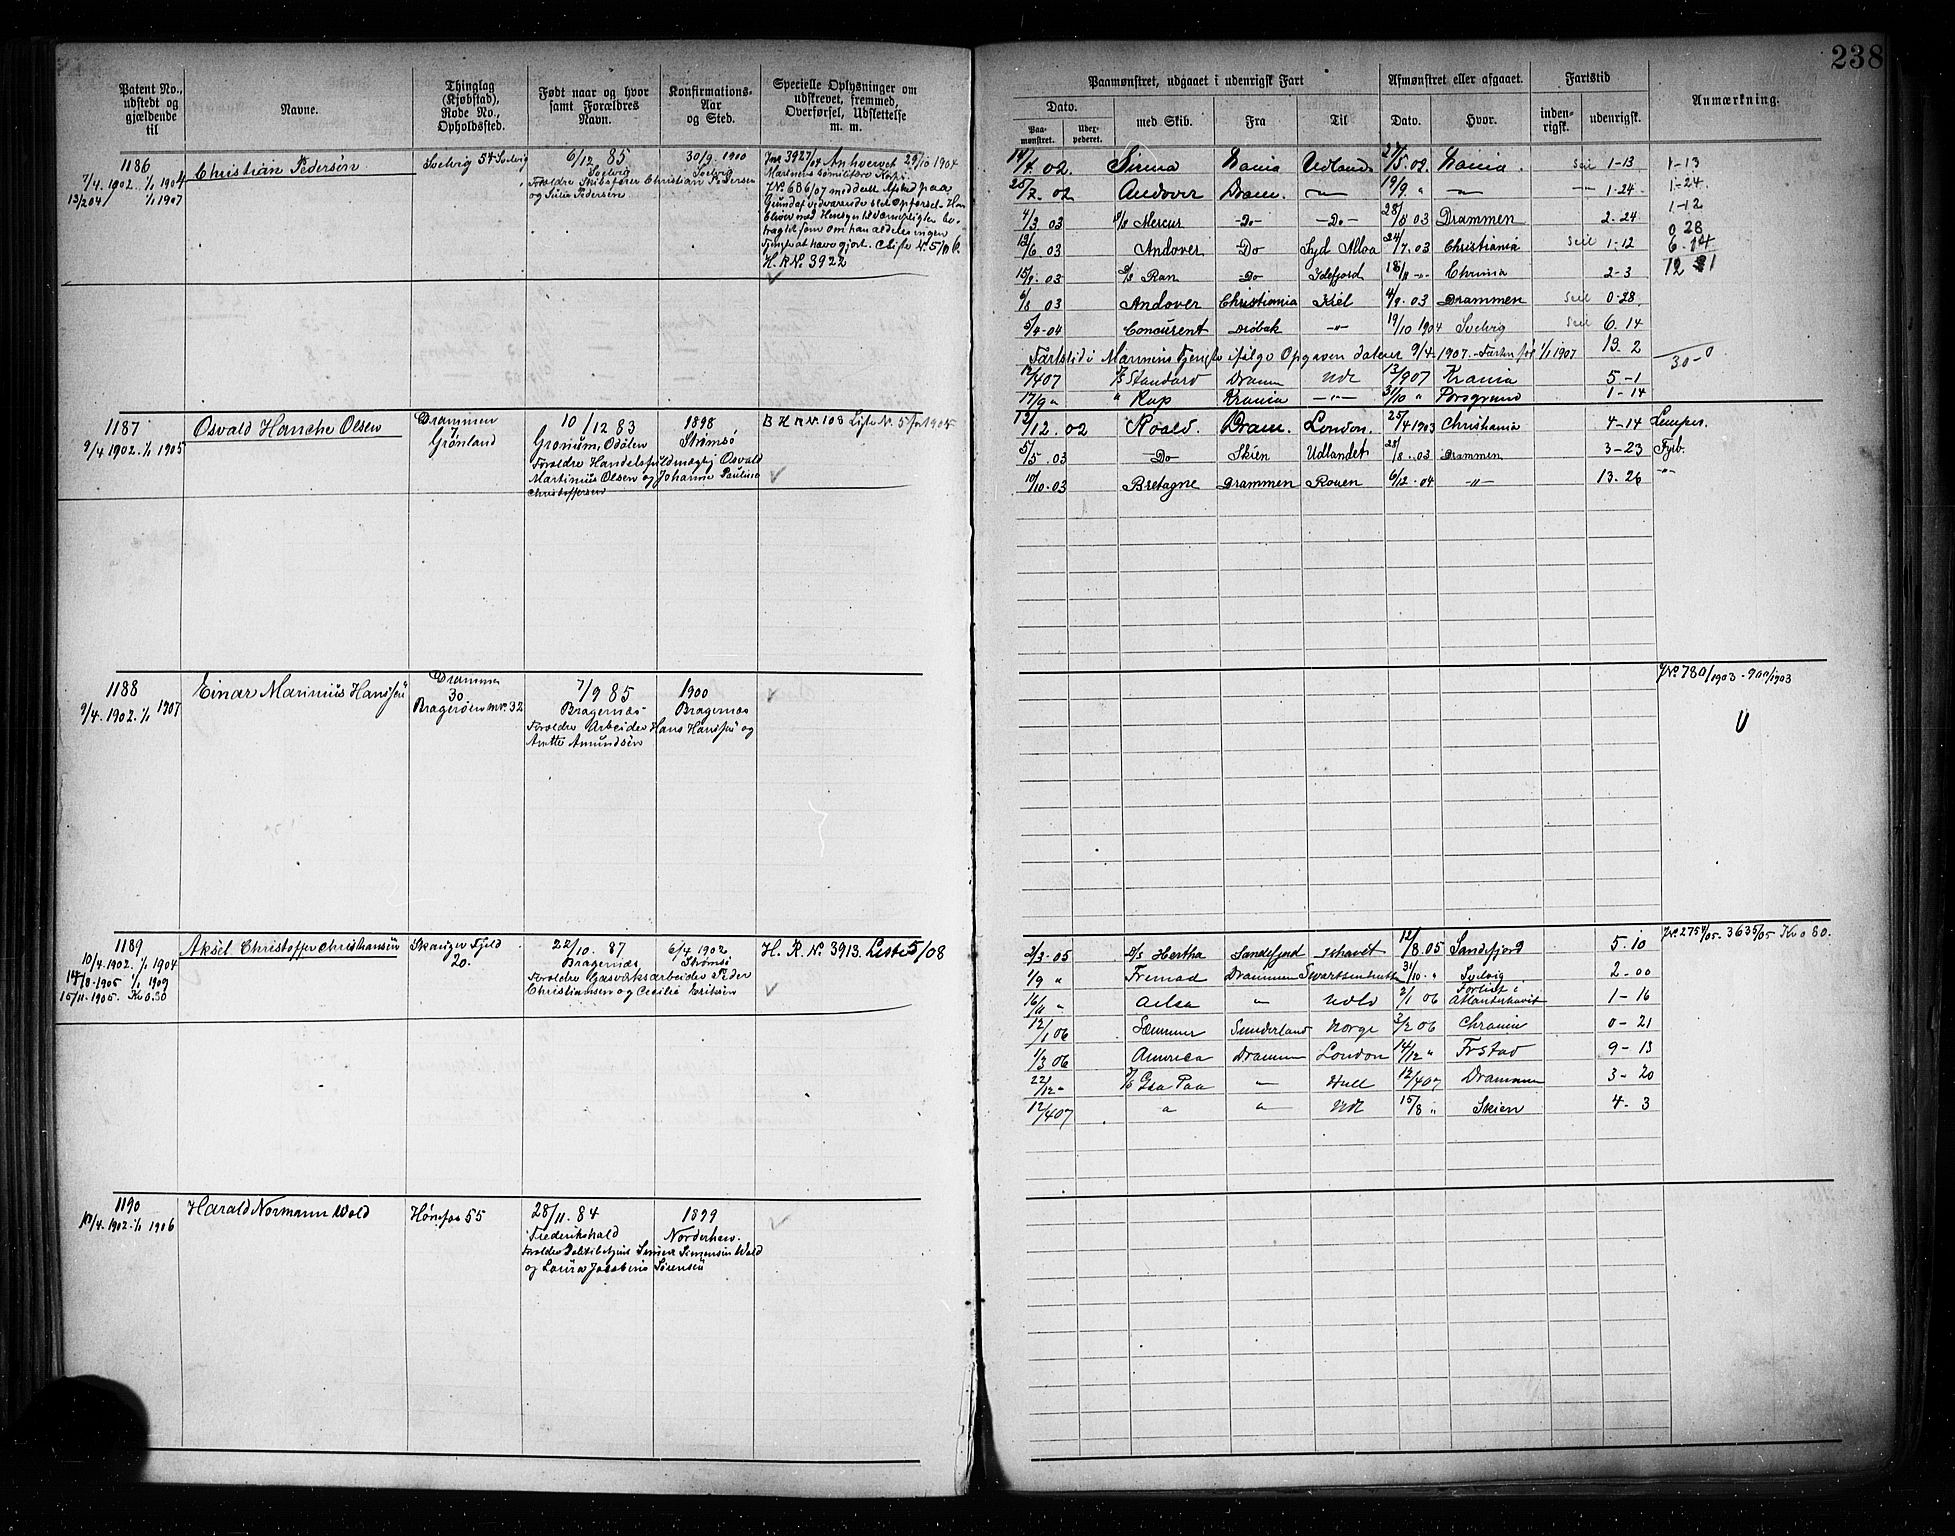 238
Patent No., udstedt og gjældende til
Navne.
Thinglag (Kjøbstad), Rode No., Opholdssted.
Født naar og hvor samt Forældres Navn.
Konfirmations-Aar og Sted.
Specielle Oplysninger om udskrevet, fremmed, Overførsel, Udslettelse m. m.
Paamønstret, udgaaet i udenrigsk Fart
Afmønstret eller afgaaet.
Fartstid
Anmærkning.
Dato.
Paa-mønstret.
Uder-pederet.
med Skib.
Fra
Til
Dato.
Hvor.
inden-rigsk.
udenrigsk.
1186
7/4. 1902. 1/1 1904
13/2 04 1/1 1907
Christian Pedersøn
Svelvig 54 Svelvig
6/12 85
Svelvig
Forældre Skibsfører Christian Pedersen
og Julia Pedersen
30/9. 1900
Svelvig
Jnr 3927/04 Anhvervet 29/10 1904
H. R No. 3922
14/4. 02. Sirma Xania Udland 27/5. 02. Xania. Seil 1-13 1-13
25/7. 02 Andover Dram. -"- 19/9. " -"- 1-24. 1-24.
4/3 03 Mercur -Do- -Do- 28/5 03 Drammen 2-24 1-12
12/6 03 Andover -Do Syd Alloa 24/7. 03 Christiania Seil 1-12 0 28
6. 14
15/9. 03 Ran -Do- Idefjord 18/11 -"- Chrinia 2-3
6/8 03 Andover Christiania Kiel 4/9. 03 Drammen Seil 0-28.
5/4-04 Concurent Drøbak -"- 19/10 1904 Svelvig Seil 6. 14
Fartstid i Marinens Tjeneste ifølge Opgaven dateret 9/4. 1907. - Farten før 1/1 1907 13. 2
30-0
12/4 07 Standard Dramn Udl 13/9 07 Krania 5.-1
17/9 " " Kap Krania -"- 31/10 " Porsgrund 1-14
1187
9/4 1902. 1/1 1905
Osvald Hanche Olsen
Drammen
7
Grønland
10/12 83
Forældre Handelsfuldmægtig Osvald
Martinius Olsen og Johanne Pauline
Christoffersen
1898
Strømsø
12/12. 02 Roald. Dram. London. 25/4 1903 Christiania 4-14 Lemper.
5/5. 03 -Do- Skien Udlandet 28/8. 03 Drammen 3-23 Fyrb.
10/10. 03 Bretagne Drammen Rouen 6/12. 04 -"- 13. 26 -"-
1188
9/4. 1902. 1/1 1907
Einar Marinius Hanssen
Drammen
30
7/9 85
Bragernæs
Forældre Arbeider Hans Hanssen og
Anette Amundsen
1900
Bragernæs
JNo. 780/1903 - 900/1903
U
1189
10/4. 1902. 1/1 1904
14/8. 1905 1/1 1909
15/11. 1905. Kr 0.80
Aksel Christoffer Christiansen
Skanger Fjeld
20.
22/10. 87
Bragernæs
Forældre Gasværksarbeider Peder
Christiansen og Cecilie Eriksen
6/4 1902
Strømsø
H. R. No. 3913. Liste 5/08
JNo. 2754/05. 3635/05 Kr 0 80.
3/3. 05 Hertha Sandefjord Ishavet 12/8. 05 Sandefjord 5. 10
1/9 " Fremad Drammen 31/10. " Svelvig 2-00
16/11 " Ailsa " Udld 2/1 06 Forlist i Atlanterhavet 1-16
12/1 06 Sunderland Norge 3/2 06 Chrania 0-21
1/3 06 America Drammen London 14/12 " Frstad 9-13
22/12 " Gsa Paa " Hull 12/4 07 Drammen 3-20
12/4 07 " " Udl 15/8 " Skien 4-3
1190
10/4. 1902. 1/1 1906
Harald Normann Wold
Hønefos 55
28/11. 84
Frederikshald
og Laura Jacobine Sørensen
1899
Norderhov.